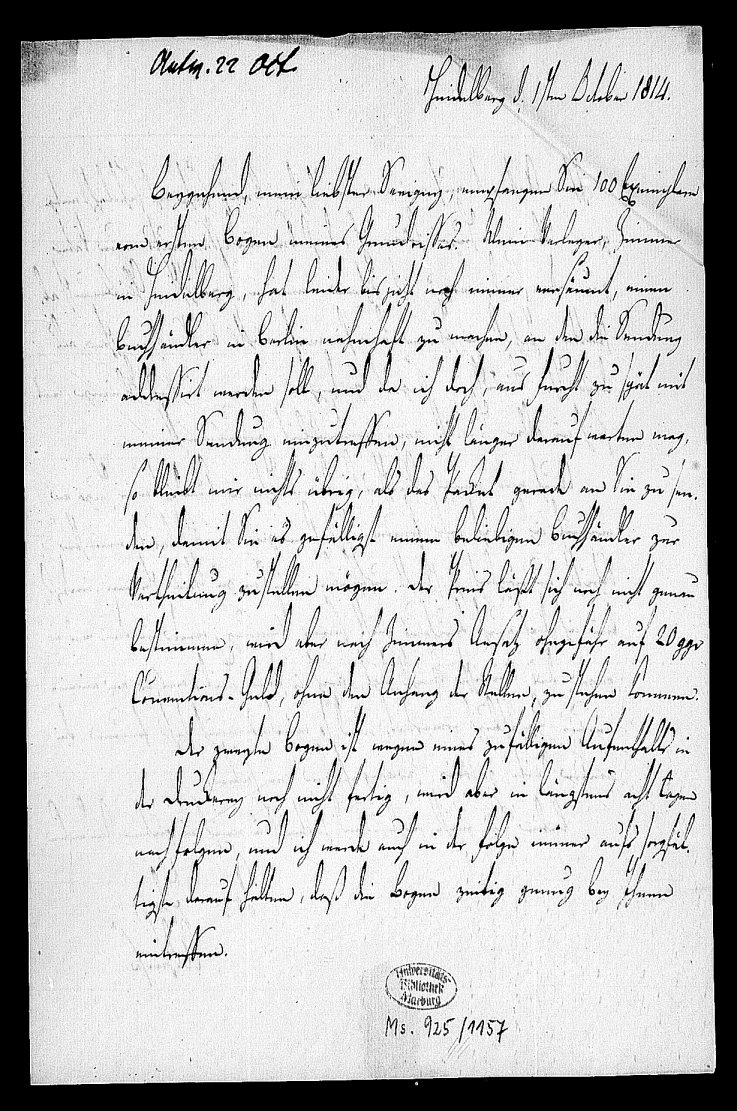 Antw. 22 Oct
Heidelberg d. 1sten October 1814.
Beygehend, mein liebster Savigny, empfangen Sie 100 Exemplare
vom ersten Bogen meines Grundrisses. Mein Verleger, Zimmer
in Heidelberg, hat leider bis jetzt noch immer versäumt, einen
Buchhändler in Berlin nahmhaft zu machen, an den die Sendung
addressirt werden soll, und da ich doch, aus Furcht zu spät mit
meiner Sendung einzutreffen, nicht länger darauf warten mag,
so bleibt mir nichts übrig, als das Packet gerade an Sie zu sen-
den, damit Sie es gefälligst einem beliebigen Buchhändler zur
Vertheilung zustellen mögen. Der Preis läßt sich noch nicht genau
bestimmen, wird aber nach Zimmers Ansatz ohngefähr auf 20 ggr
Conventions-Geld, ohne den Anhang der Stellen, zu stehen kommen.
Der zweyte Bogen ist wegen eines zufälligen Aufenthalts in
der Druckerey noch nicht fertig, wird aber in längstens acht Tagen
nachfolgen, und ich werde auch in der Folge immer aufs sorgfäl-
tigste darauf halten, daß die Bogen zeitig genug bey Ihnen
eintreffen.
Universitäts-
Bibliothek
Marburg
Ms. 925/1157